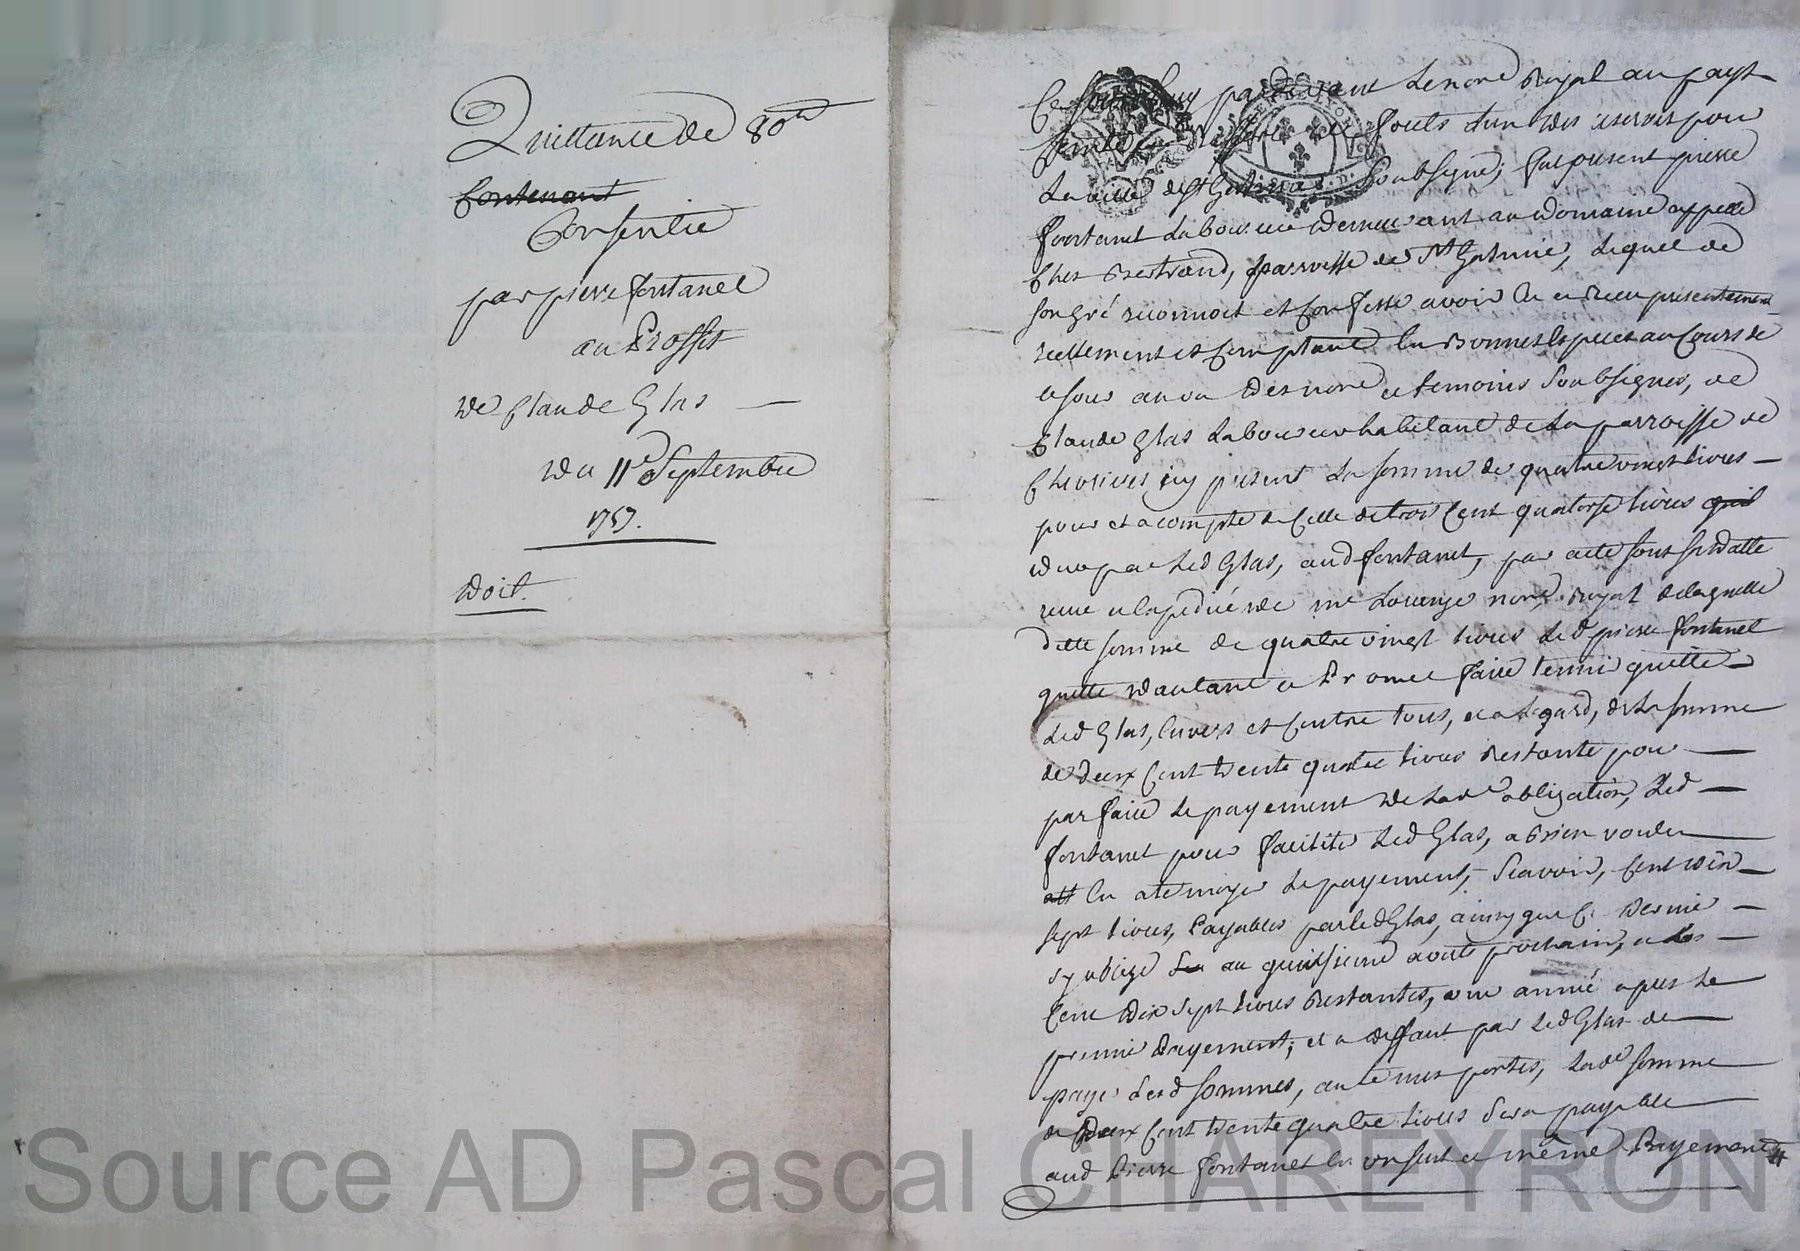 Quittance de 80ᵗᵗ
Contenant
Consentie
par pierre fontanel
au Proffit
de Claude Glas
du 11ᵉ Septembre
1757.
Doit.
pardevant le nore Royal au payt
et fouls l'un des reservés pour
la ville de St Galmier Soubsigné, fut present pierre
fontanel laboureur demeurant au domaine appellé
Chez Bertrand, parroisse de St Galmier, lequel de
son gré reconnoit et Confesse avoir eu et receu presentement
reellement et Comptant En Bonnes Especes au Cours de
ce jour au vu des nore et temoins Soubsignes, de
Claude Glas laboureur habitant de la parroisse de
Chevrieres icy present la somme de quatre vingt livres
pour et acompte de Celle de trois Cent quatorse livres quil
due par led Glas, aud fontanel, par acte sous sa datte
receu et expedié de me nore Royal de laquelle
ditte somme de quatre vingt livres led pierre fontanel
quitte d'autant et Promet faire tenir quitte
led Glas, Envers et Contre tous, et a legard, de la somme
de deux Cent trente quatre livres Restante pour
parfaire le payement de lade obligation, led
fontanel pour faciliter led Glas, a Bien voulu
En atermoyer le payement, Scavoir, Cent dix
sept livres, Payables par led Glas, ainsy que Ce dernier
sy oblige au quinsieme aoust prochain, et les
Cent Dix Sept livres Restantes, une année apres le
premier Payement; et a deffaut par led Glas de
payer lesd sommes, au termes portes, lade somme
de Deux Cent trente quatre livres Sera payable
aud Pierre fontanel En un seul et même Payement
Source AD Pascal CHAREYRON